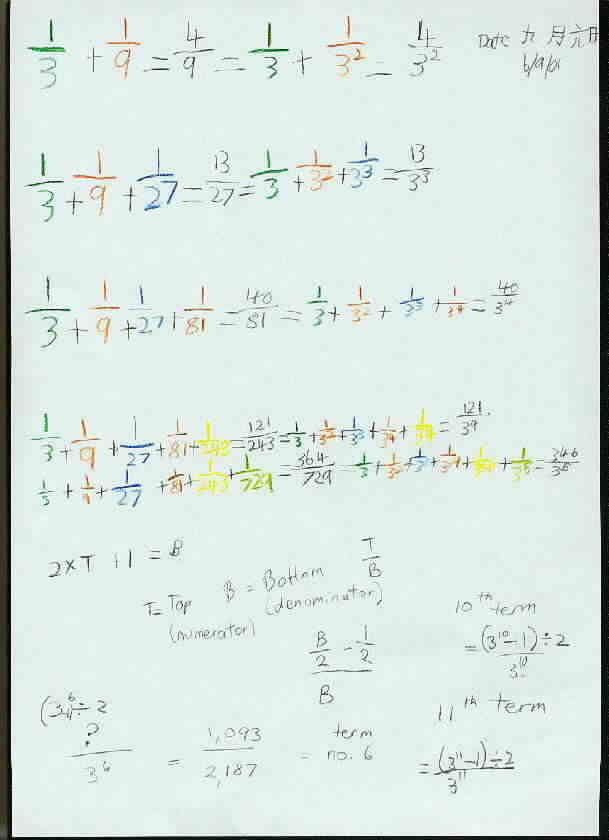 1/3 + 1/9 = 4/9 = 1/3 + 1/3² = 4/3²
Date 九月六日
6/9/01
1/3 + 1/9 + 1/27 = 13/27 = 1/3 + 1/3² + 1/3³ = 13/3³
1/3 + 1/9 + 1/27 + 1/81 = 40/81 = 1/3 + 1/3² + 1/3³ + 1/3⁴ = 40/3⁴
1/3 + 1/9 + 1/27 + 1/81 + 1/243 = 121/243 = 1/3 + 1/3² + 1/3³ + 1/3⁴ + 1/3⁴ = 121/3⁴
1/3 + 1/9 + 1/27 + 1/81 + 1/243 + 1/729 = 364/729 = 1/3 + 1/3² + 1/3³ + 1/3⁴ + + 1/3⁵ = 346/3⁵
2×T + 1 = B
T = Top
(numerator)
B = Bottom
(denominator)
T/B
B/2 - 1/2
B
10th term
= (3¹⁰ - 1) ÷ 2
3¹⁰
÷ 2
?
3⁶
= 1,093/2,187
= term
no. 6
11th term
= (3¹¹ - 1) ÷ 2
3¹¹